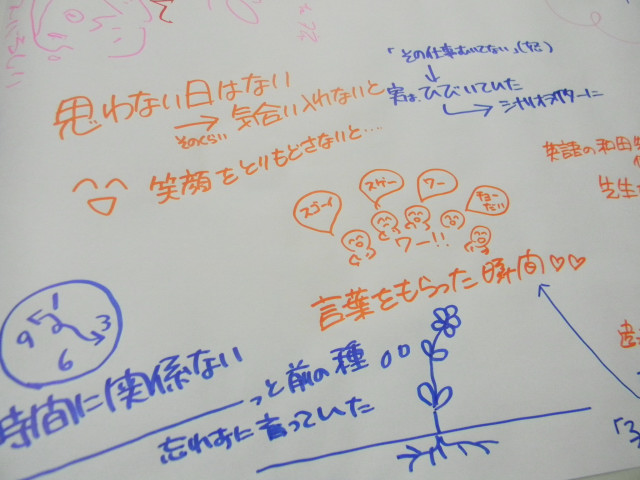 「その仕事むいてない」(兄)
↓
思わない日はない
→ 気合い入れないと
そのくらい
実は、ひびいていた
→ シナリオライターに
笑顔をとりもどさないと....
英語の和田
先生
スゴーイ
スゲー
ワー
チョーだい
ワー!!
言葉をもらった瞬間♡♡
1
9 3
6
時間に関係ない
っと前の種
忘れずに育っていた